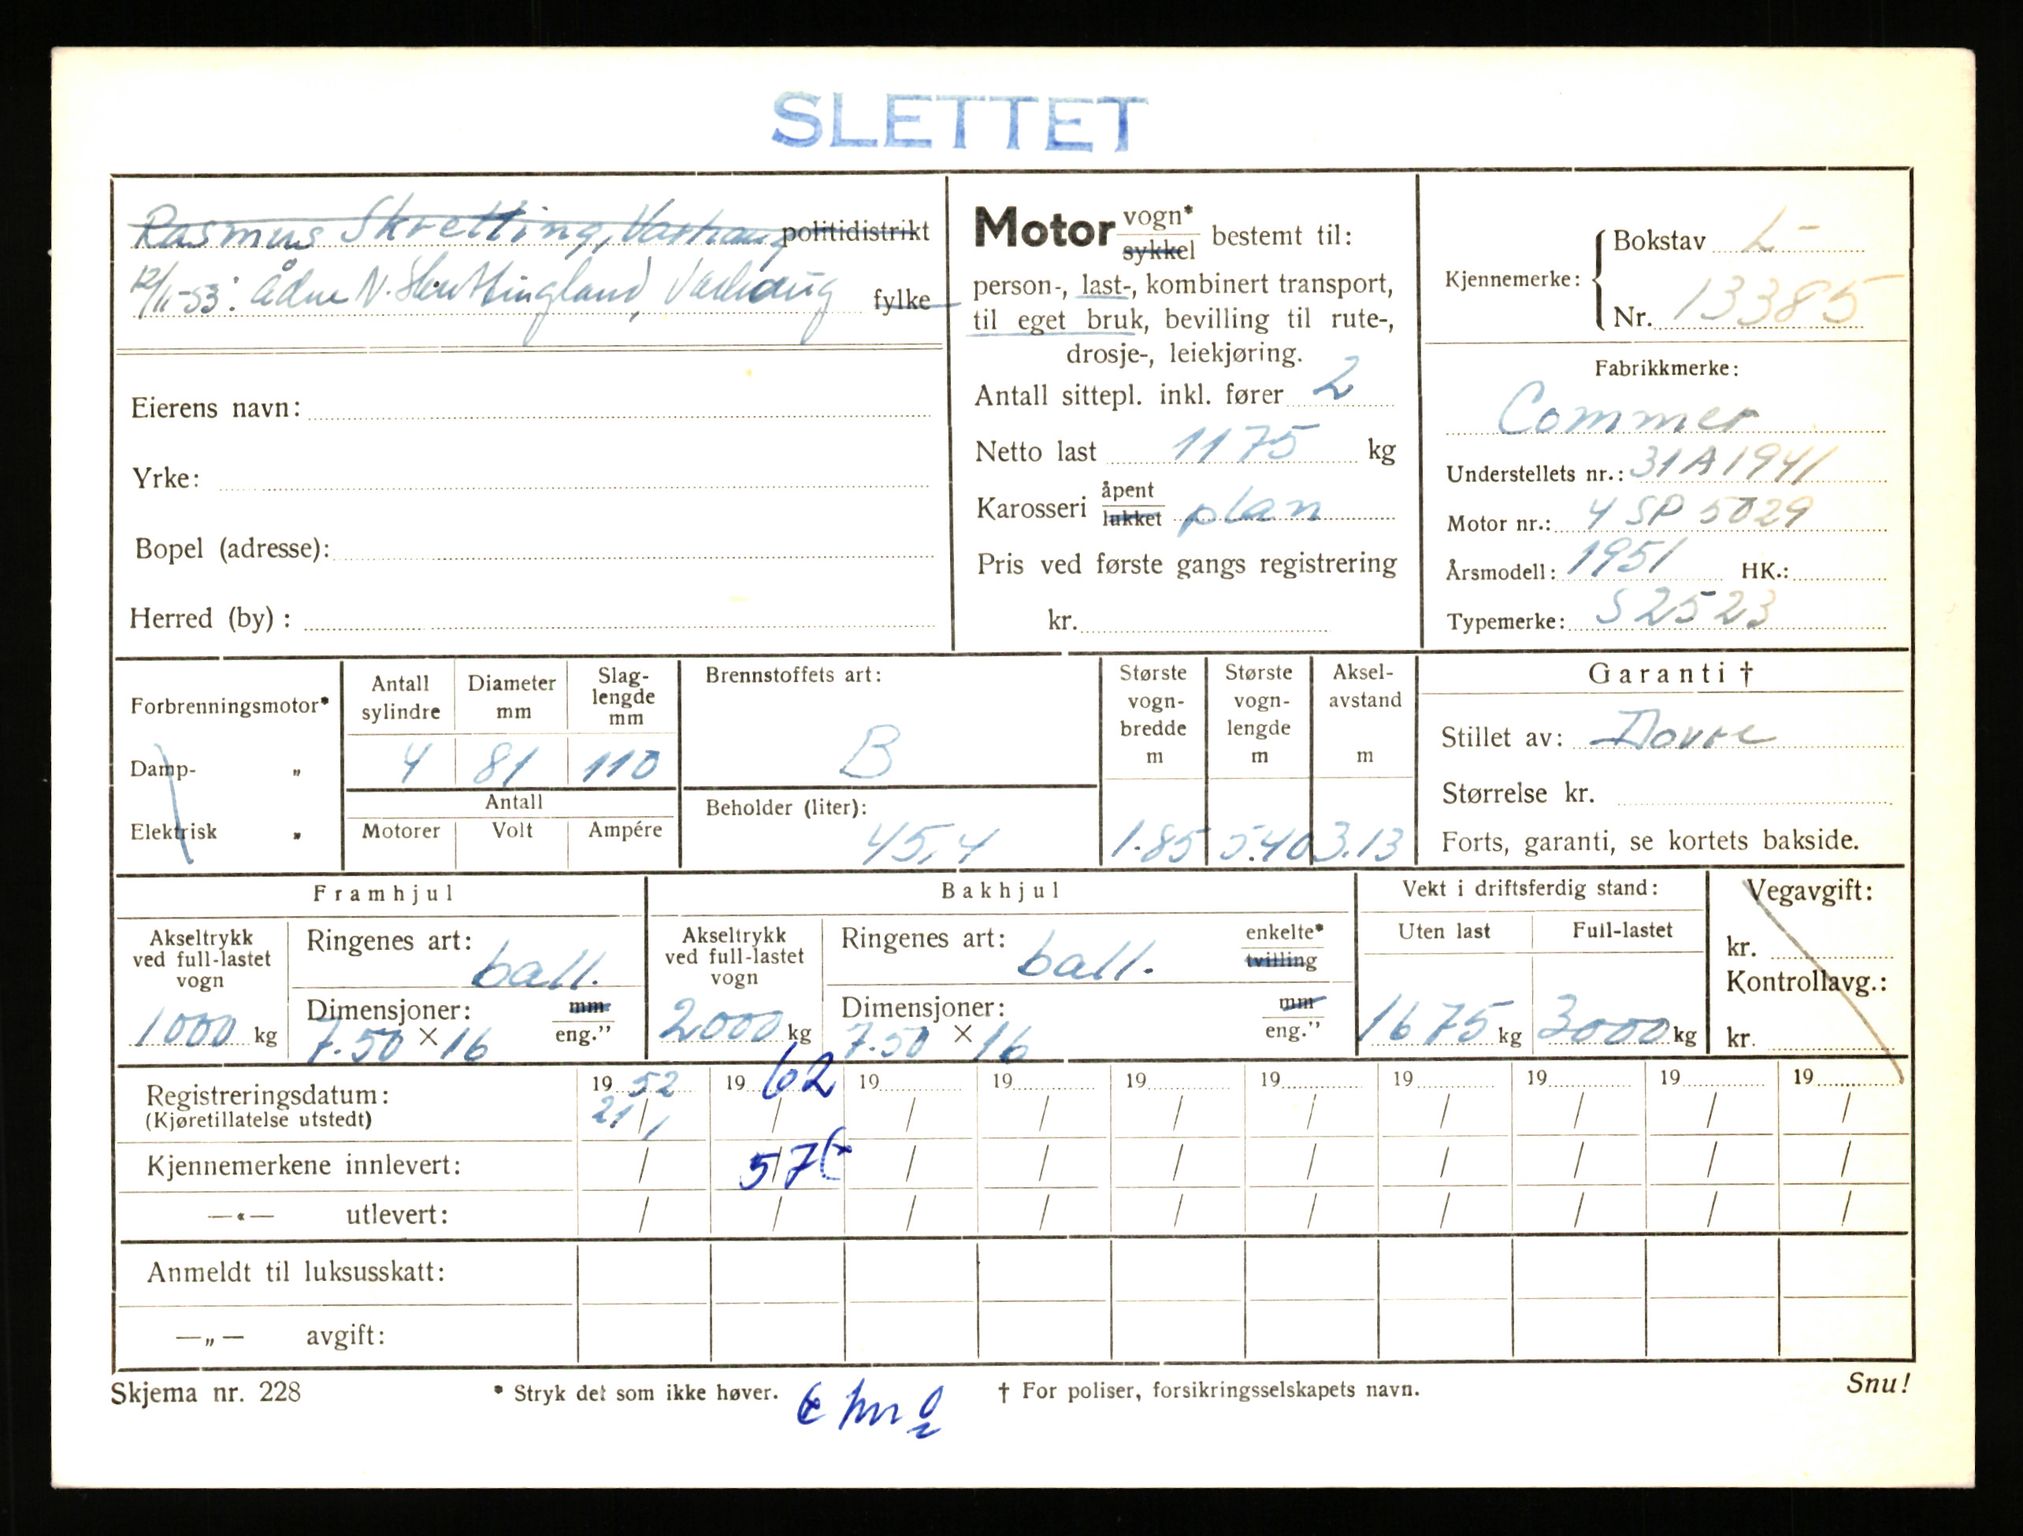 SLETTET
Rasmus Skretting, Varhaug politidistrikt
12/11-53: Ådne N. Skrettingland, Varhaug fylke
Eierens navn:
Yrke:
Bopel (adresse):
Herred (by) :
Motor vogn* sykkel bestemt til:
person-, last-, kombinert transport,
til eget bruk, bevilling til rute-,
drosje-, leiekjøring.
Antall sittepl. inkl. fører 2
Netto last 1175 kg
Karosseri åpent lukket plan
Pris ved første gangs registrering
kr.
Kjennemerke: Bokstav L-
Nr. 13385
Fabrikkmerke:
Commer
Understellets nr.: 31A1941
Motor nr.: 4 SP 5029
Årsmodell: 1951 HK.:
Typemerke: S2523
Forbrenningsmotor*
Damp- „
Elektrisk „
Antall sylindre Diameter mm Slag-lengde mm
4 81 110
Antall
Motorer Volt Ampére
Brennstoffets art:
B
Beholder (liter):
45,4
Største vogn-bredde m
1.85
Største vogn-lengde m
5.40
Aksel-avstand m
3.13
Garanti †
Stillet av: Dovre
Størrelse kr.
Forts, garanti, se kortets bakside.
Framhjul
Akseltrykk ved full-lastet vogn
1000 kg
Ringenes art: ball.
Dimensjoner: mm
7.50 × 16 eng.”
Bakhjul
Akseltrykk ved full-lastet vogn
2000 kg
Ringenes art: ball. enkelte* tvilling
Dimensjoner: mm
7.50 × 16 eng.”
Vekt i driftsferdig stand:
Uten last Full-lastet
1675 kg 3000 kg
Vegavgift:
kr.
Kontrollavg.:
kr.
Registreringsdatum: 19 52 19 62 19 19 19 19 19 19 19 19
(Kjøretillatelse utstedt) 21/1 / / / / / / / / /
Kjennemerkene innlevert: / 5/7 / / / / / / / /
—«— utlevert: / / / / / / / / / /
Anmeldt til luksusskatt:
—„— avgift:
Skjema nr. 228 * Stryk det som ikke høver. † For poliser, forsikringsselskapets navn. Snu!